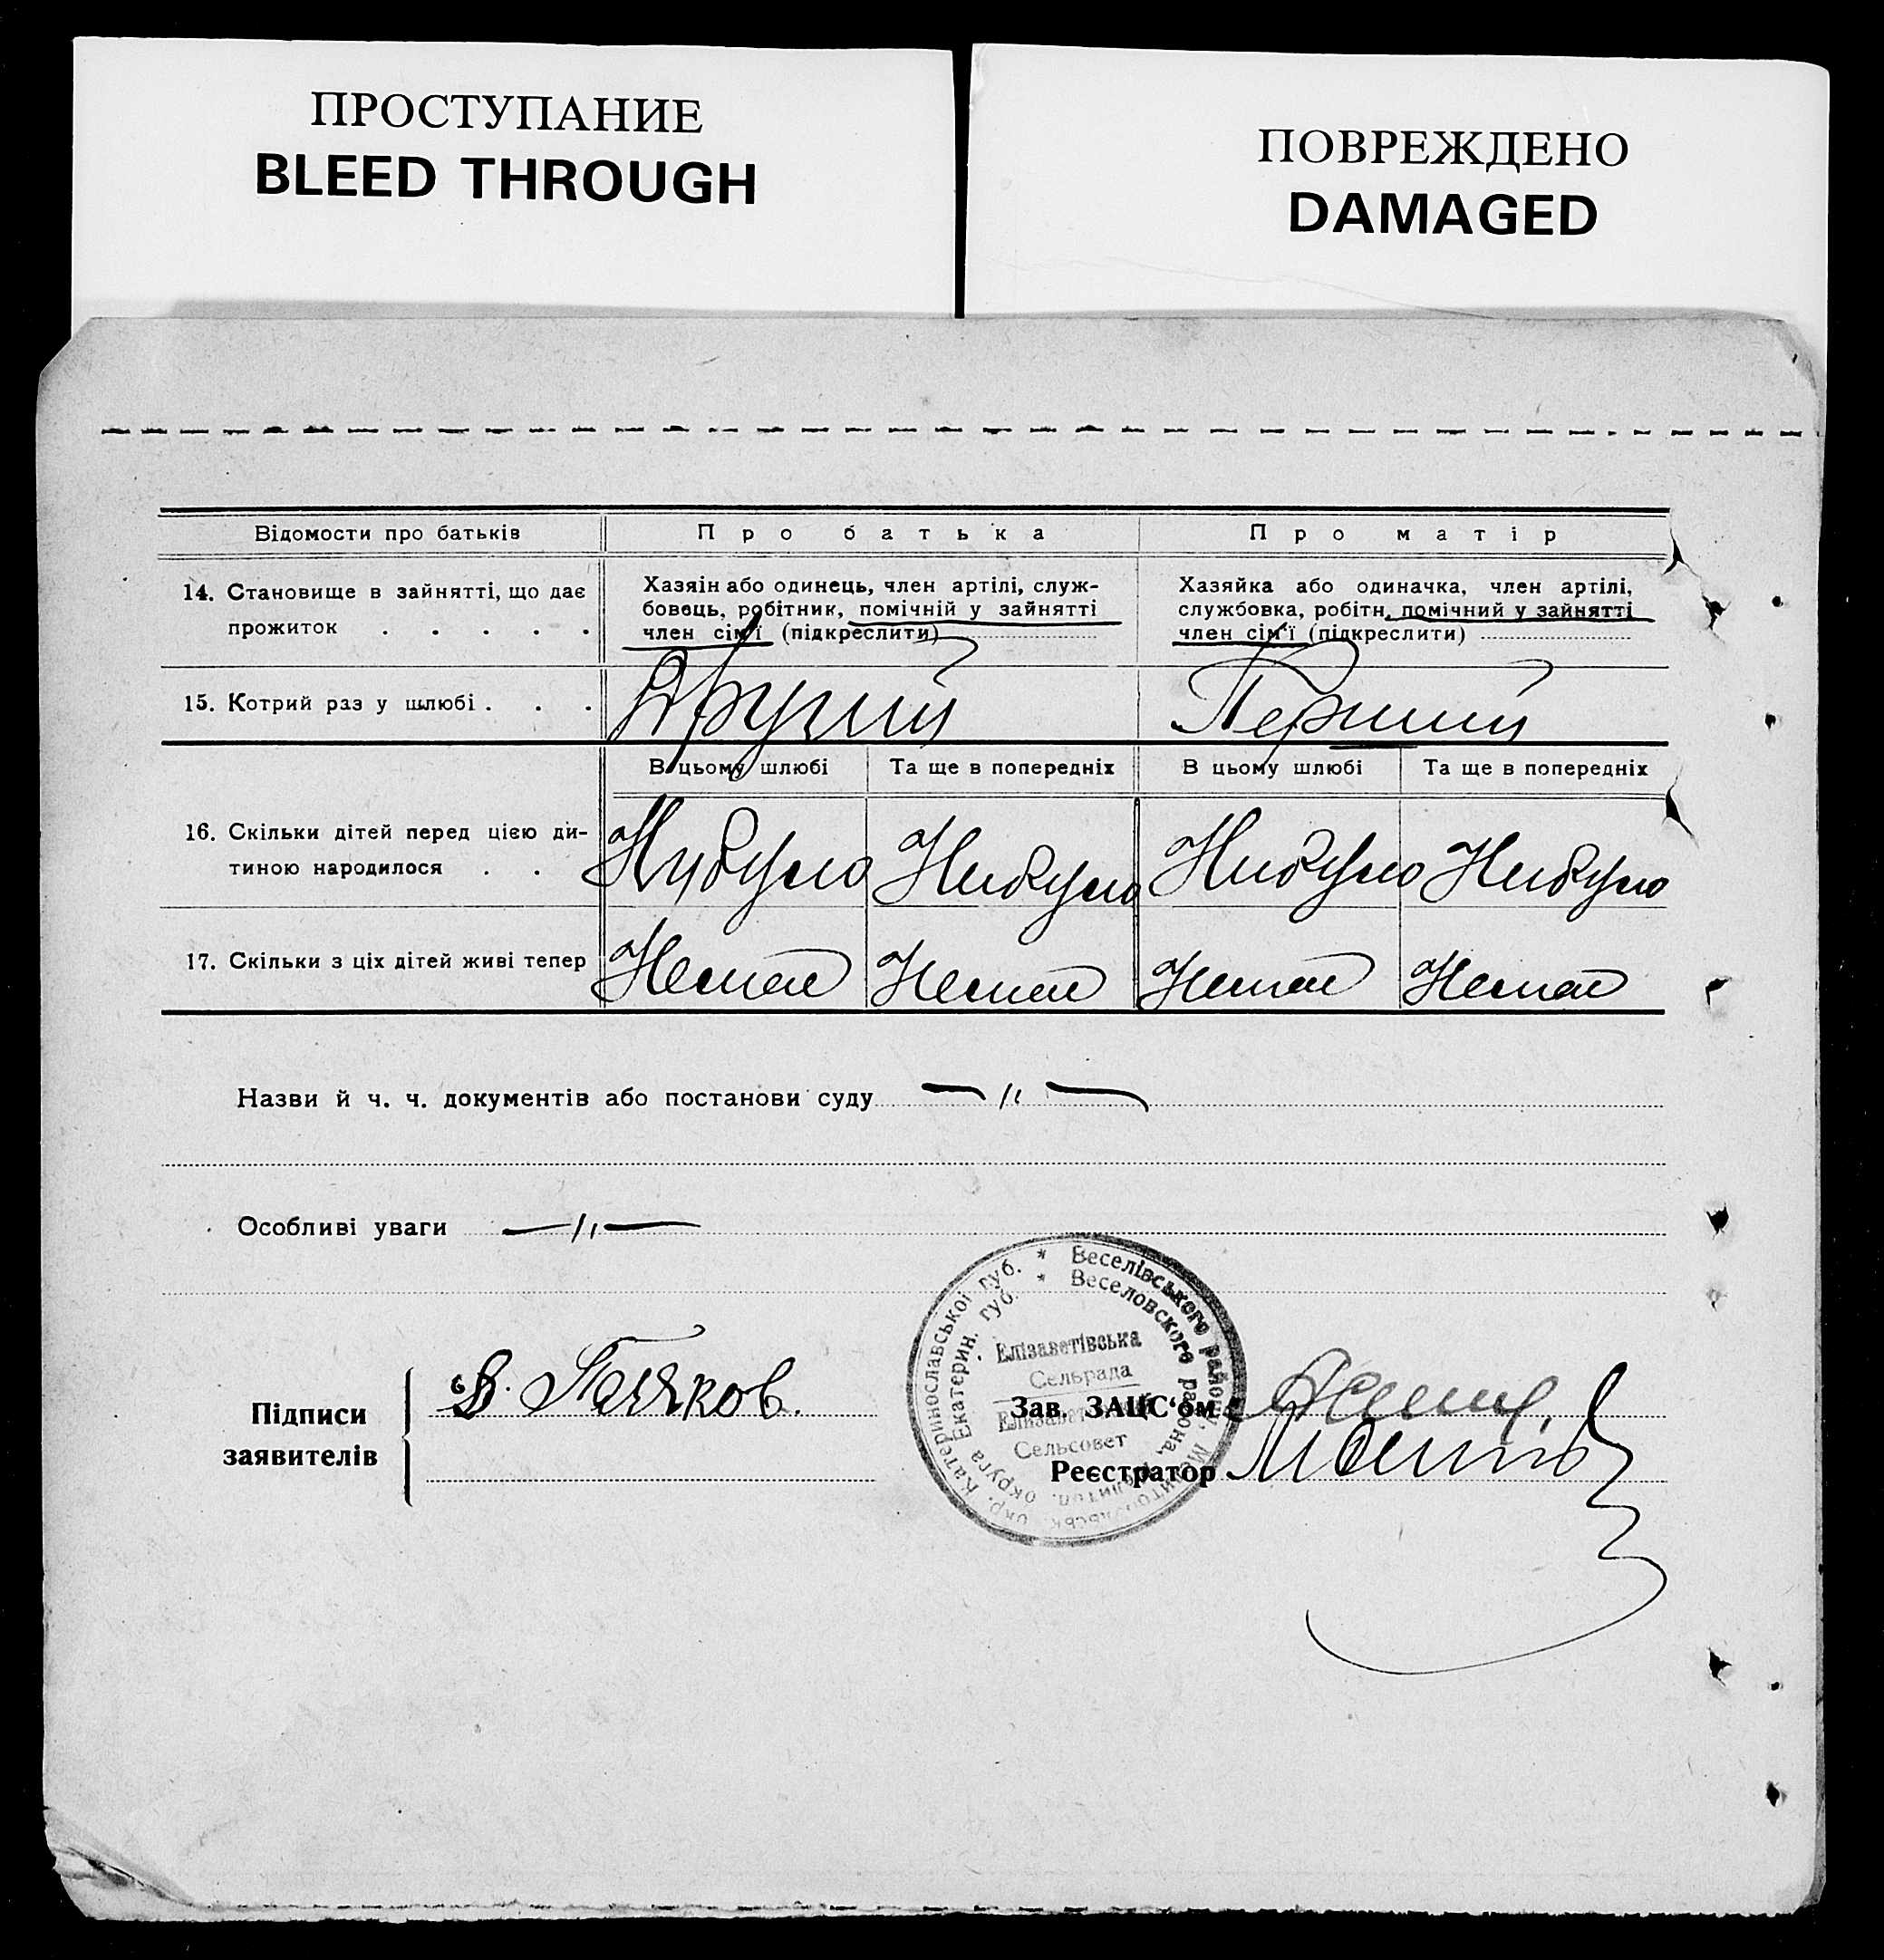 ПРОСТУПАНИЕ
BLEED THROUGH
ПОВРЕЖДЕНО
DAMAGED
Відомости про батьків
Про батька
Про матір
14. Становище в зайнятті, що дає
прожиток . . . . .
Хазяїн або одинець, член артілі, служ-
бовець, робітник, помічній у зайнятті
член сім'ї (підкреслити)
Хазяйка або одиначка, член артілі,
службовка, робітн, помічний у зайнятті
член сім'ї (підкреслити)
15. Котрий раз у шлюбі . . .
Другий
Перший
В цьому шлюбі
Та ще в попередніх
В цьому шлюбі
Та ще в попередніх
16. Скільки дітей перед цією ди-
тиною народилося . .
Нибуло
Нибуло
Нибуло
Нибуло
17. Скільки з ціх дітей живі тепер
Немає
Немає
Немає
Немає
Назви й ч. ч. документів або постанови суду — 〃 —
Особливі уваги — 〃 —
Підписи
заявителів
Катеринославської губ. * Веселівського району,
округа Екатерин. губ. * Веселовского района,
Елізаветівська
Сельрада
Сельсовет
Зав. ЗАЦС'ом
Реєстратор